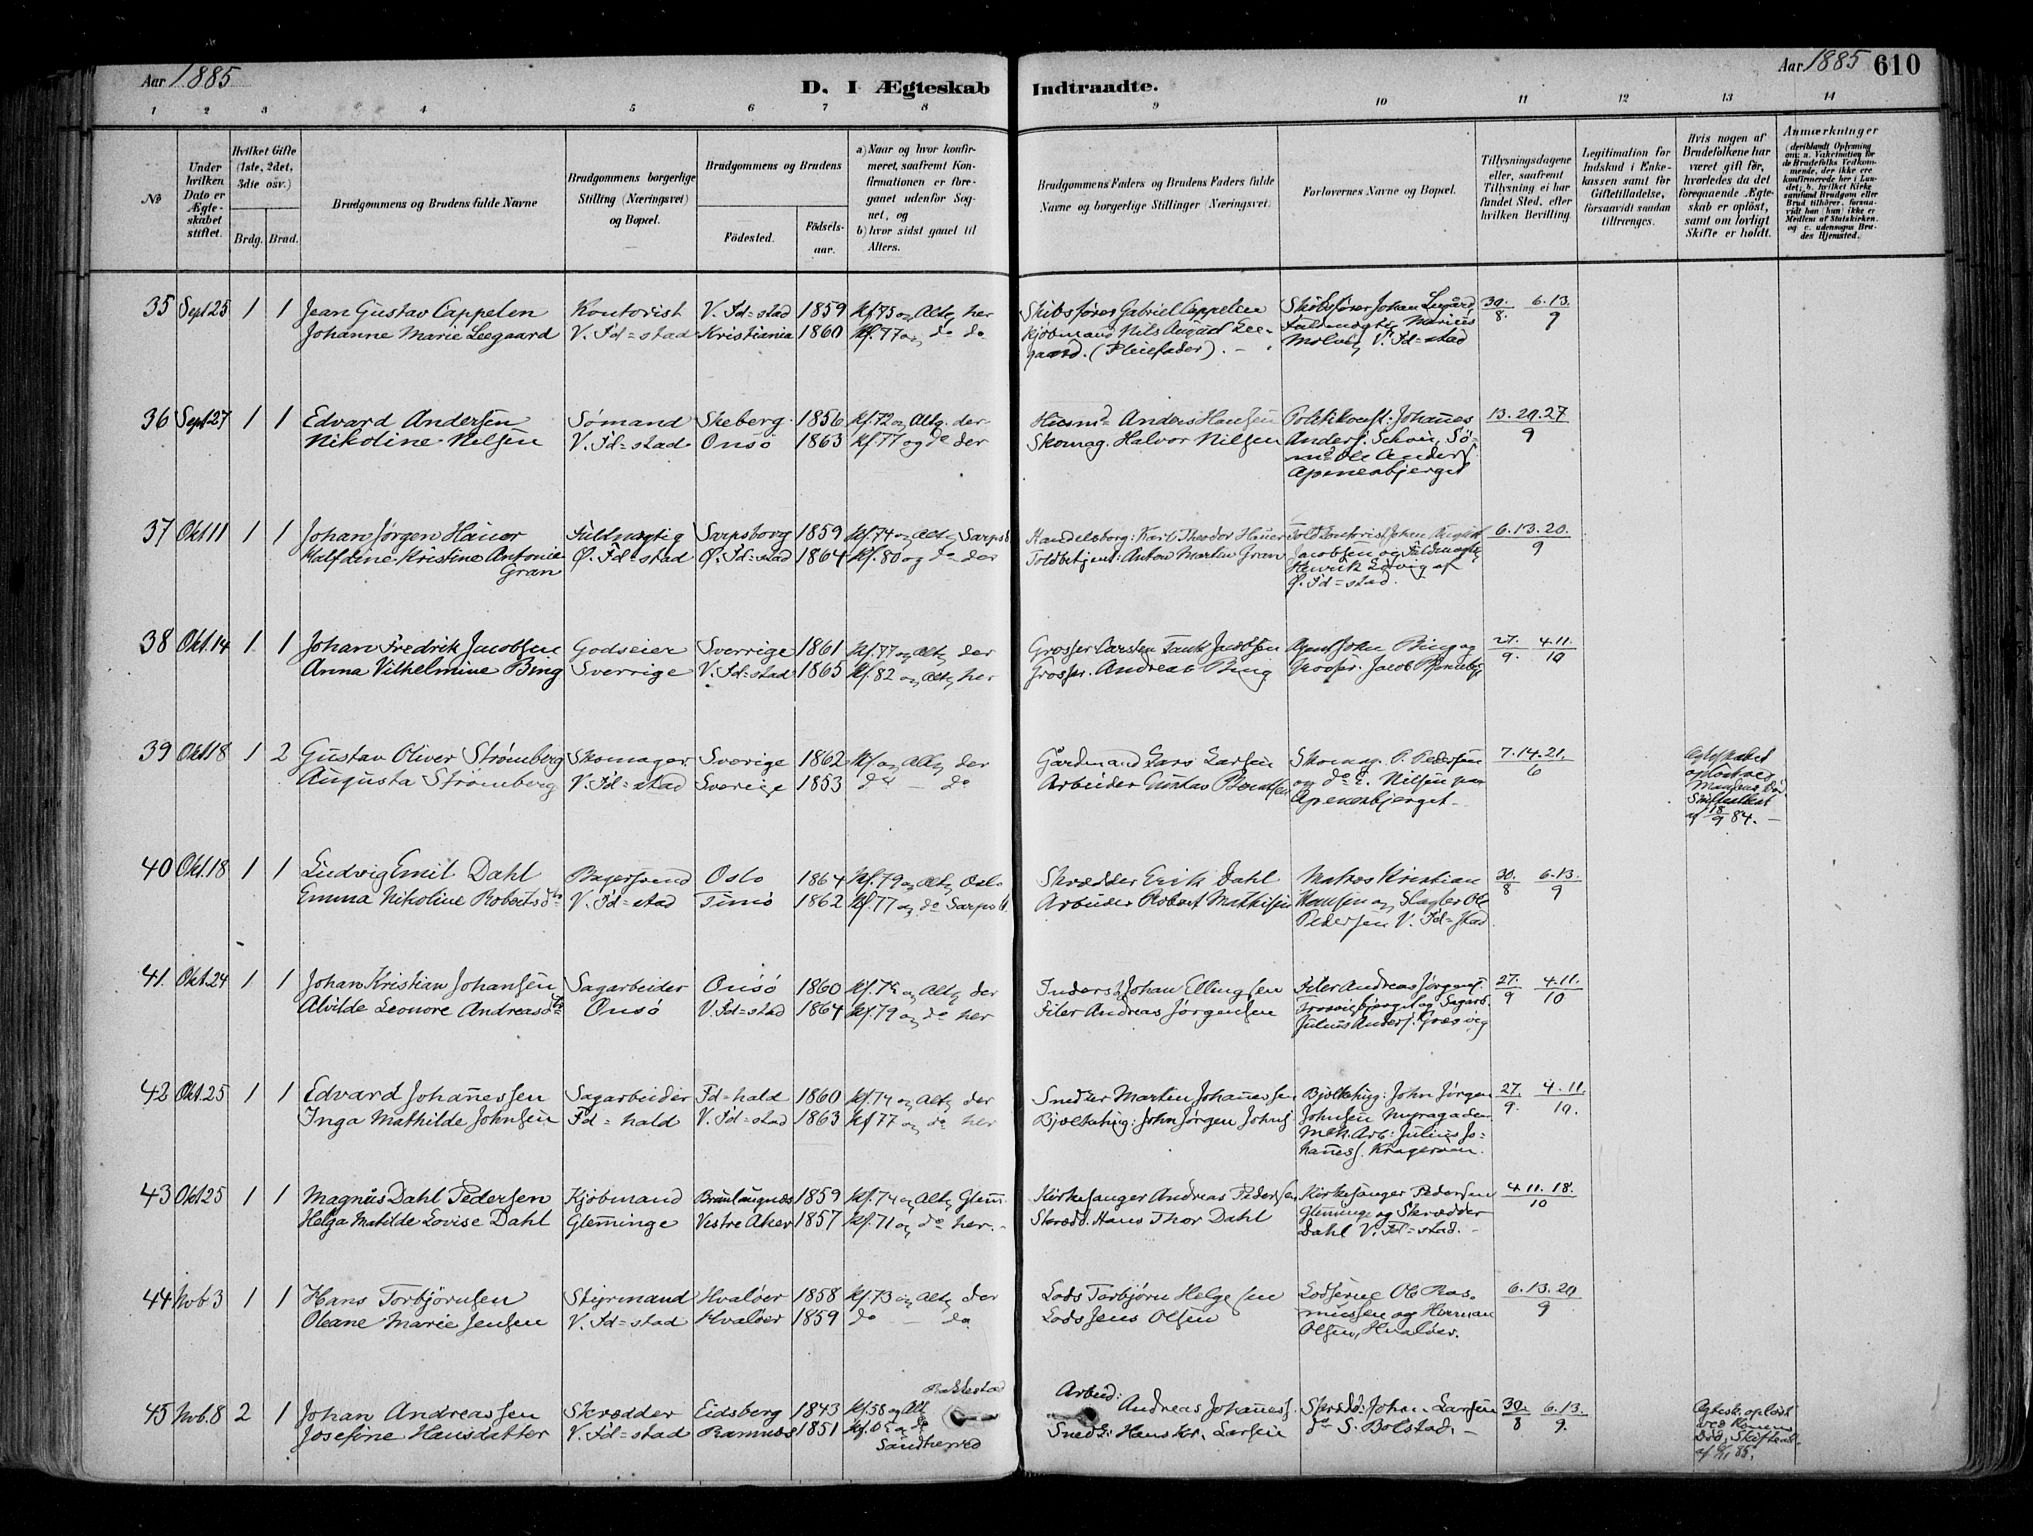 Aar 1885
D. I Ægteskab Indtraadte.
Aar 1885 610
1 2 3 4 5 6 7 8 9 10 11 12 13 14
No
Under hvilken Dato er Ægteskabet stiftet.
Hvilket Gifte (1ste, 2det, 3die osv.)
Brdg. Brud.
Brudgommens og Brudens fulde Navne
Brudgommens borgerlige Stilling (Næringsvei) og Bopæl.
Brudgommens og Brudens
Födested. Födsels-aar.
a) Naar og hvor konfirmeret, saafremt Konfirmationen er foregaaet udenfor Sognet, og
b) hvor sidst gaaet til Alters.
Brudgommens Faders og Brudens Faders fulde Navne og borgerlige Stillinger (Næringsvei)
Forlovernes Navne og Bopæl.
Tillysningsdagene eller, saafremt Tillysning ei har fundet Sted, efter hvilken Bevilling.
Legitimation for Indskud i Enkekassen samt for Giftetilladelse, forsaavidt saadan tiltrænges.
Hvis nogen af Brudefolkene har været gift før, hvorledes da det foregaaende Ægteskab er opløst, samt om lovligt Skifte er holdt.
Anmærkninger
35 Sept 25 1 1 Jean Gustav Cappelen Kontorist V. Fd=stad 1859 Kf. 75 og Altg her Skibsfører Gabriel Cappelen 30. 6. 13.
Johanne Marie Leegaard V. Fd=stad Kristiania 1860 Kf. 77 og do do Kjøbmand Nils August Lee- 8. 9
gaard. (Pleiefader). V. Fd=stad
36 Sept 27 1 1 Edvard Andersen Sømand Skeberg 1856 Kf. 72 og Altg. der Husmd Anders Hansen Johanes 13. 20. 27
Nikoline Nilsen V. Fd=stad Onsø 1863 Kf. 77 og do der Skomag. Halvor Nilsen 9
Apenesbjerget
37 Okt 11 1 1 Johan Jørgen Hauer Fuldmægtig Sarpsborg 1859 Kf. 74 og Altg Sarpsb Handelsborg: Karl Theodor Hauer 6. 13. 20.
Halfdine Kristine Antonie Ø. Fd=stad Ø. Fd=stad 1864 Kf. 80 og do der Toldbetjent Anton Martin Gran Jacobsen og Fuldmægtig 9
Gran Henrik
Ø. Fd=stad.
38 Okt. 14 1 1 Johan Fredrik Jacobsen Godseier Sverrige 1861 Kf. 77 og Altg der Grosser Carsten Tank Jacobsen John Bing og 27. 4. 11.
Anna Vilhelmine Bing Sverrige V. Fd=stad 1865 Kf. 82 og Altg her Grosser. Andreas Bing Grosser. Jacob 9. 10
39 Okt 18 1 2 Gustav Oliver Strømberg Skomager Sverige 1862 Kf og Altg der Gårdmand Lars Larsen Skomag. P. Pedersen 7. 14. 21.
Augusta Strømberg V. Fd=stad Sverige 1853 do – do Arbeider Gustav og do E. Nilsen paa 6
Apenesbjerget
Ægteskabet opløst ved Mandens Død. Skifteattest af 18/9 84.
40 Okt. 18 1 1 Ludvig Emil Dahl Bagersvend Oslo 1864 Kf. 79 og Altg Oslo Skrædder Erik Dahl Matros Kristian 30. 6. 13.
Emma Nikoline Robertsdtr V. Fd=stad Tunø 1862 Kf. 77 og do Sarpsb. Arbeider Robert Mathisen Hansen og Slagter Ole 8 9
Pedersen V. Fd=stad
41. Okt. 24 1 1 Johan Kristian Johansen Sagarbeider Onsö 1860 Kf. 75 og Altg der Inderst Johan Ellingsen Filer Andreas Jørgens. 27. 4. 11.
Alvilde Leonore Andreasdtr Onsö V. Fd=stad 1864 Kf. 79 og do her Filer Andreas Jørgensen 9 10
Julius Anders. Græsvig
42 Okt. 25 1 1 Edvard Johanessen Sagarbeider Fd=hald 1860 Kf. 74 og Altg der Snedker Martin Johanessen John Jørgen 27. 4. 11.
Inga Mathilde Johnsen Fd=hald V. Fd=stad 1863 Kf 77 og do her John Jørgen Johns. Johnsen Myragaden 9. 10.
Mek. Arb: Julius Jo-
haness. Kragerøen.
43 Okt 25 1 1 Magnus Dahl Pedersen Kjöbmand 1859 Kf. 74 og Altg Glem. Kirkesanger Andreas Pedersen Kirkesanger Pedersen 4. 11. 18.
Helga Matilde Lovise Dahl Glemminge Vestre Aker 1857 Kf. 71 og do her. Skrædd. Hans Thor Dahl Glemminge og Skrædder 10
Dahl V. Fd=stad.
44 Nob 3 1 1 Hans Torbjörnsen Styrmand Hvaløer 1858 Kf. 73 og Altg der Lods Torbjørn Helgesen Lodserne Ole Ras- 6. 13. 20
Oleane Marie Jensen V. Fd=stad Hvaløer 1859 do – do Lods Jens Olsen mussen og Herman 9
Olsen, Hvaløer.
45 Nob. 8 2 1 Johan Andreassen Skrædder Eidsberg 1843 Kf. 58 og Alt Rakkestad Arbeid: Andreas Johaness. Skrædd: Johan Larsen 30. 6. 13.
Josefine Hansdatter V. Fd=stad 1851 Kf. 65 og do Sandherred Snedk: Hans Kr. Larsen do S. Bolstad. 8 9.
Ægtesk. opløst ved Konens Død, Skifteatt. af 85.